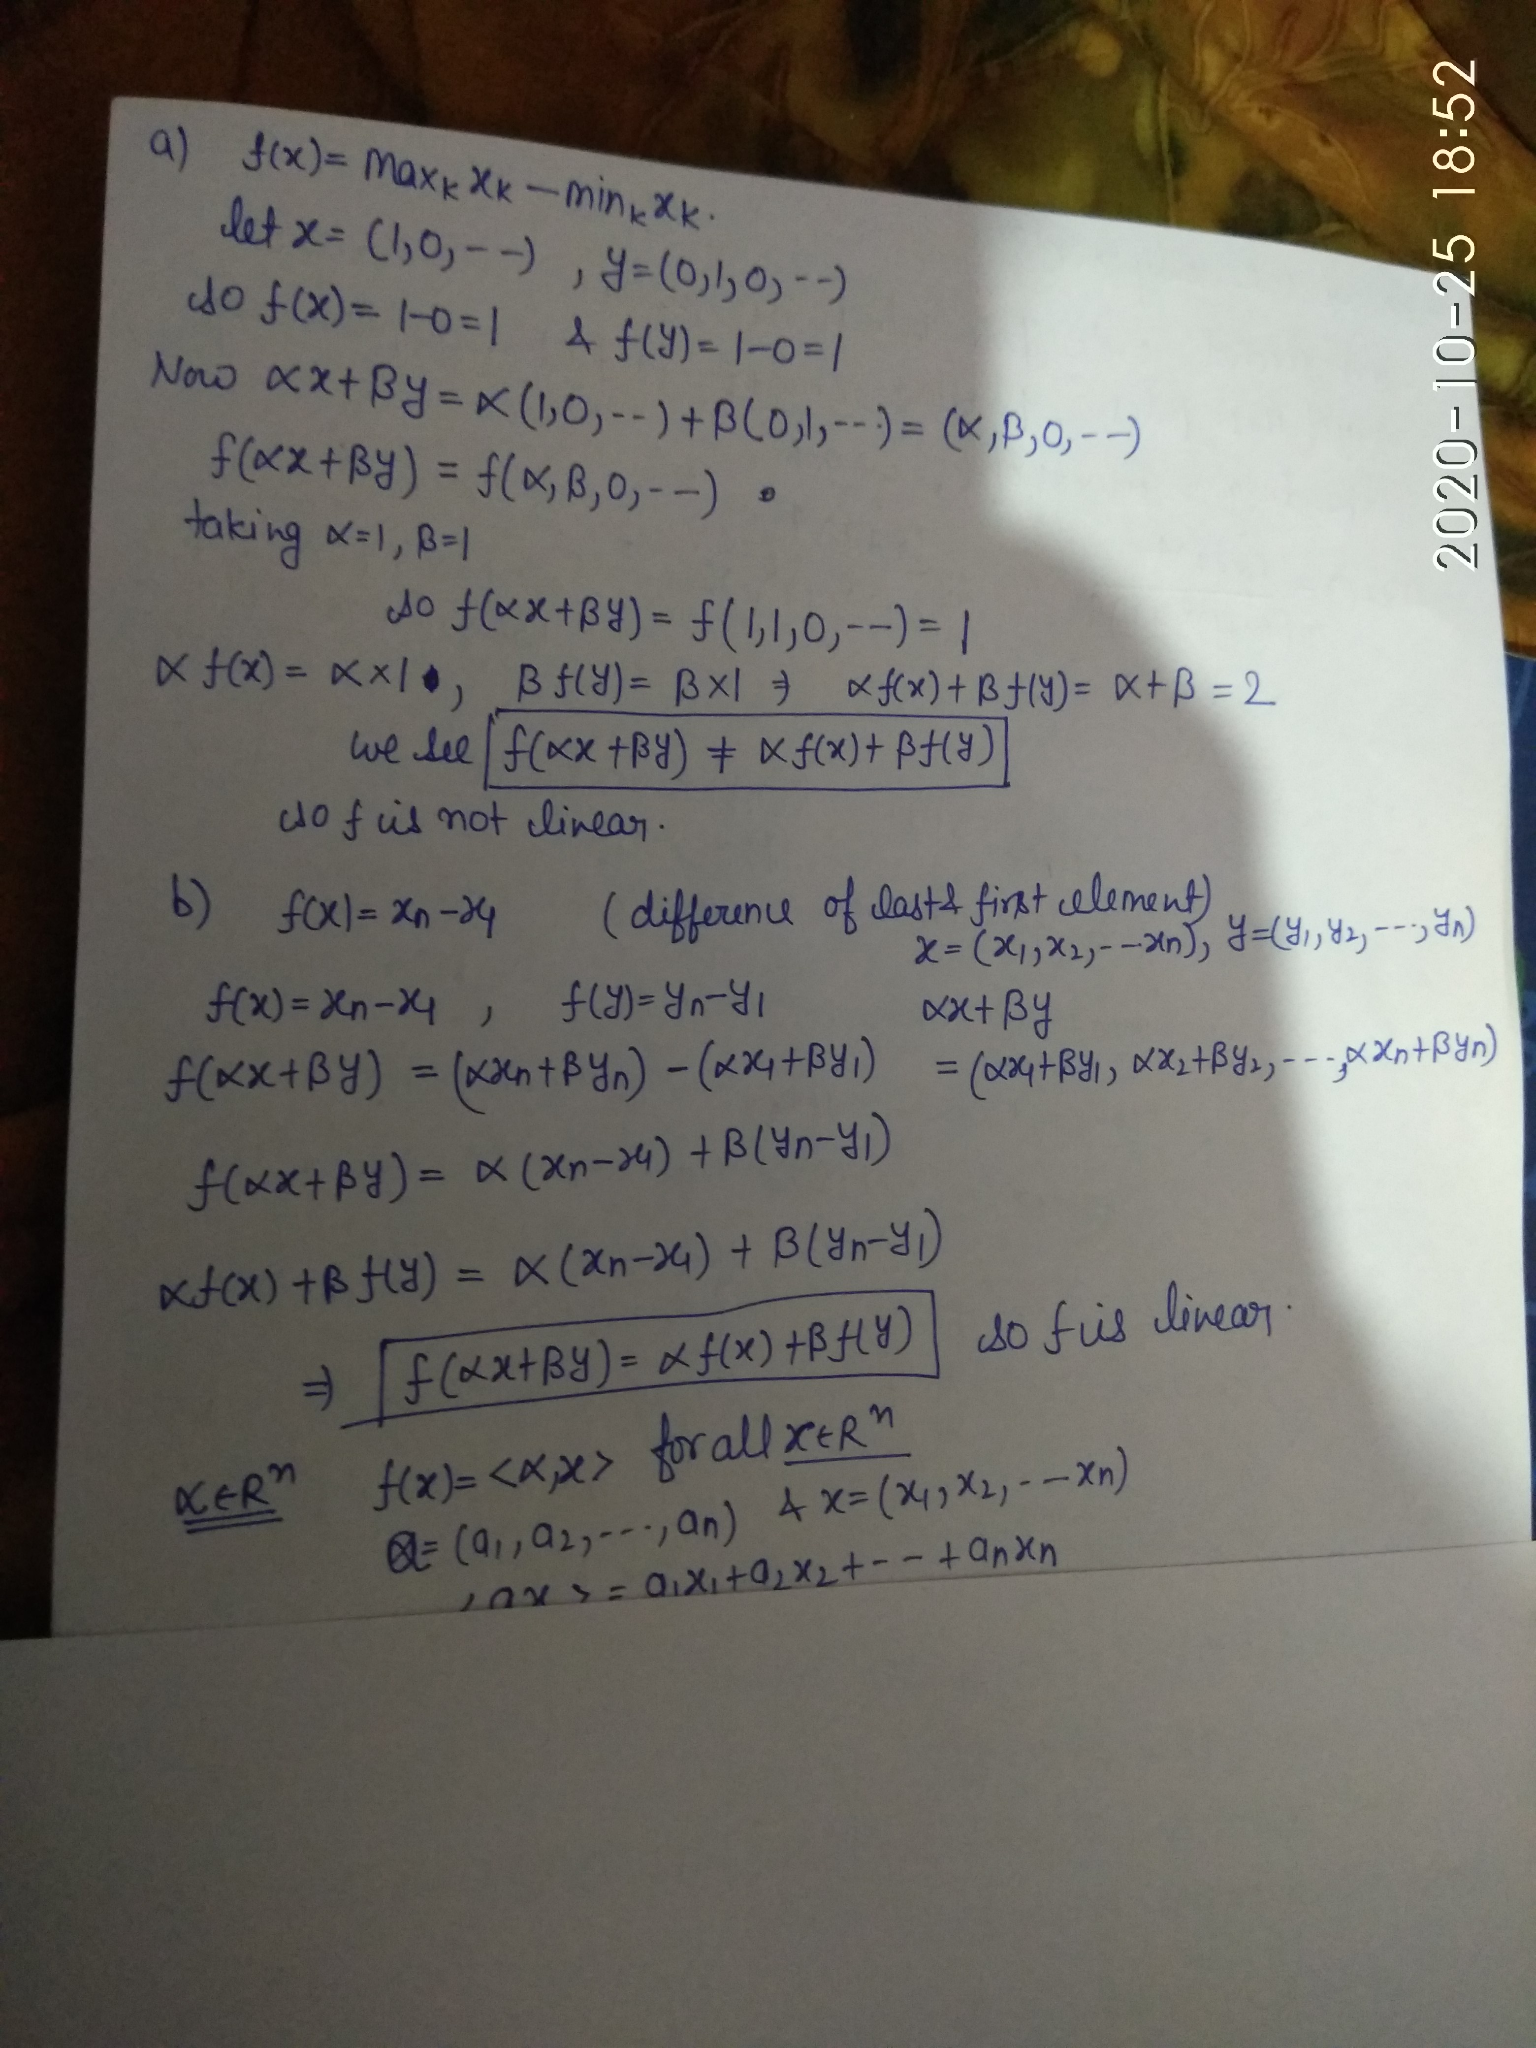 a) f(x) = maxₖ xₖ − minₖ xₖ.
let x = (1,0,--) , y=(0,1,0,--)
so f(x) = 1-0=1 & f(y) = 1-0=1
Now αx+βy = α(1,0,--)+β(0,1,---) = (α,β,0,--)
f(αx+βy) = f(α,β,0,--)
taking α=1, β=1
so f(αx+βy) = f(1,1,0,---) = 1
αf(x) = α×1, βf(y) = β×1 ⇒ αf(x)+βf(y) = α+β = 2
we see f(αx+βy) ≠ αf(x)+βf(y)
so f is not linear.
b) f(x) = xn-x1 (difference of last & first element)
x = (x1,x2,---xn), y=(y1,y2,---,yn)
f(x) = xn-x1 , f(y)=yn-y1 αx+βy
f(αx+βy) = (αxn+βyn) - (αx1+βy1) = (αx1+βy1, αx2+βy2,---,αxn+βyn)
f(αx+βy) = α(xn-x1) + β(yn-y1)
αf(x)+βf(y) = α(xn-x1) + β(yn-y1)
⇒ f(αx+βy) = αf(x)+βf(y) so f is linear.
α∈Rⁿ f(x)= <α,x> for all x∈Rⁿ
a= (a1,a2,---,an) & x=(x1,x2,---xn)
= a1x1+a2x2+--+anxn
2020-10-25 18:52